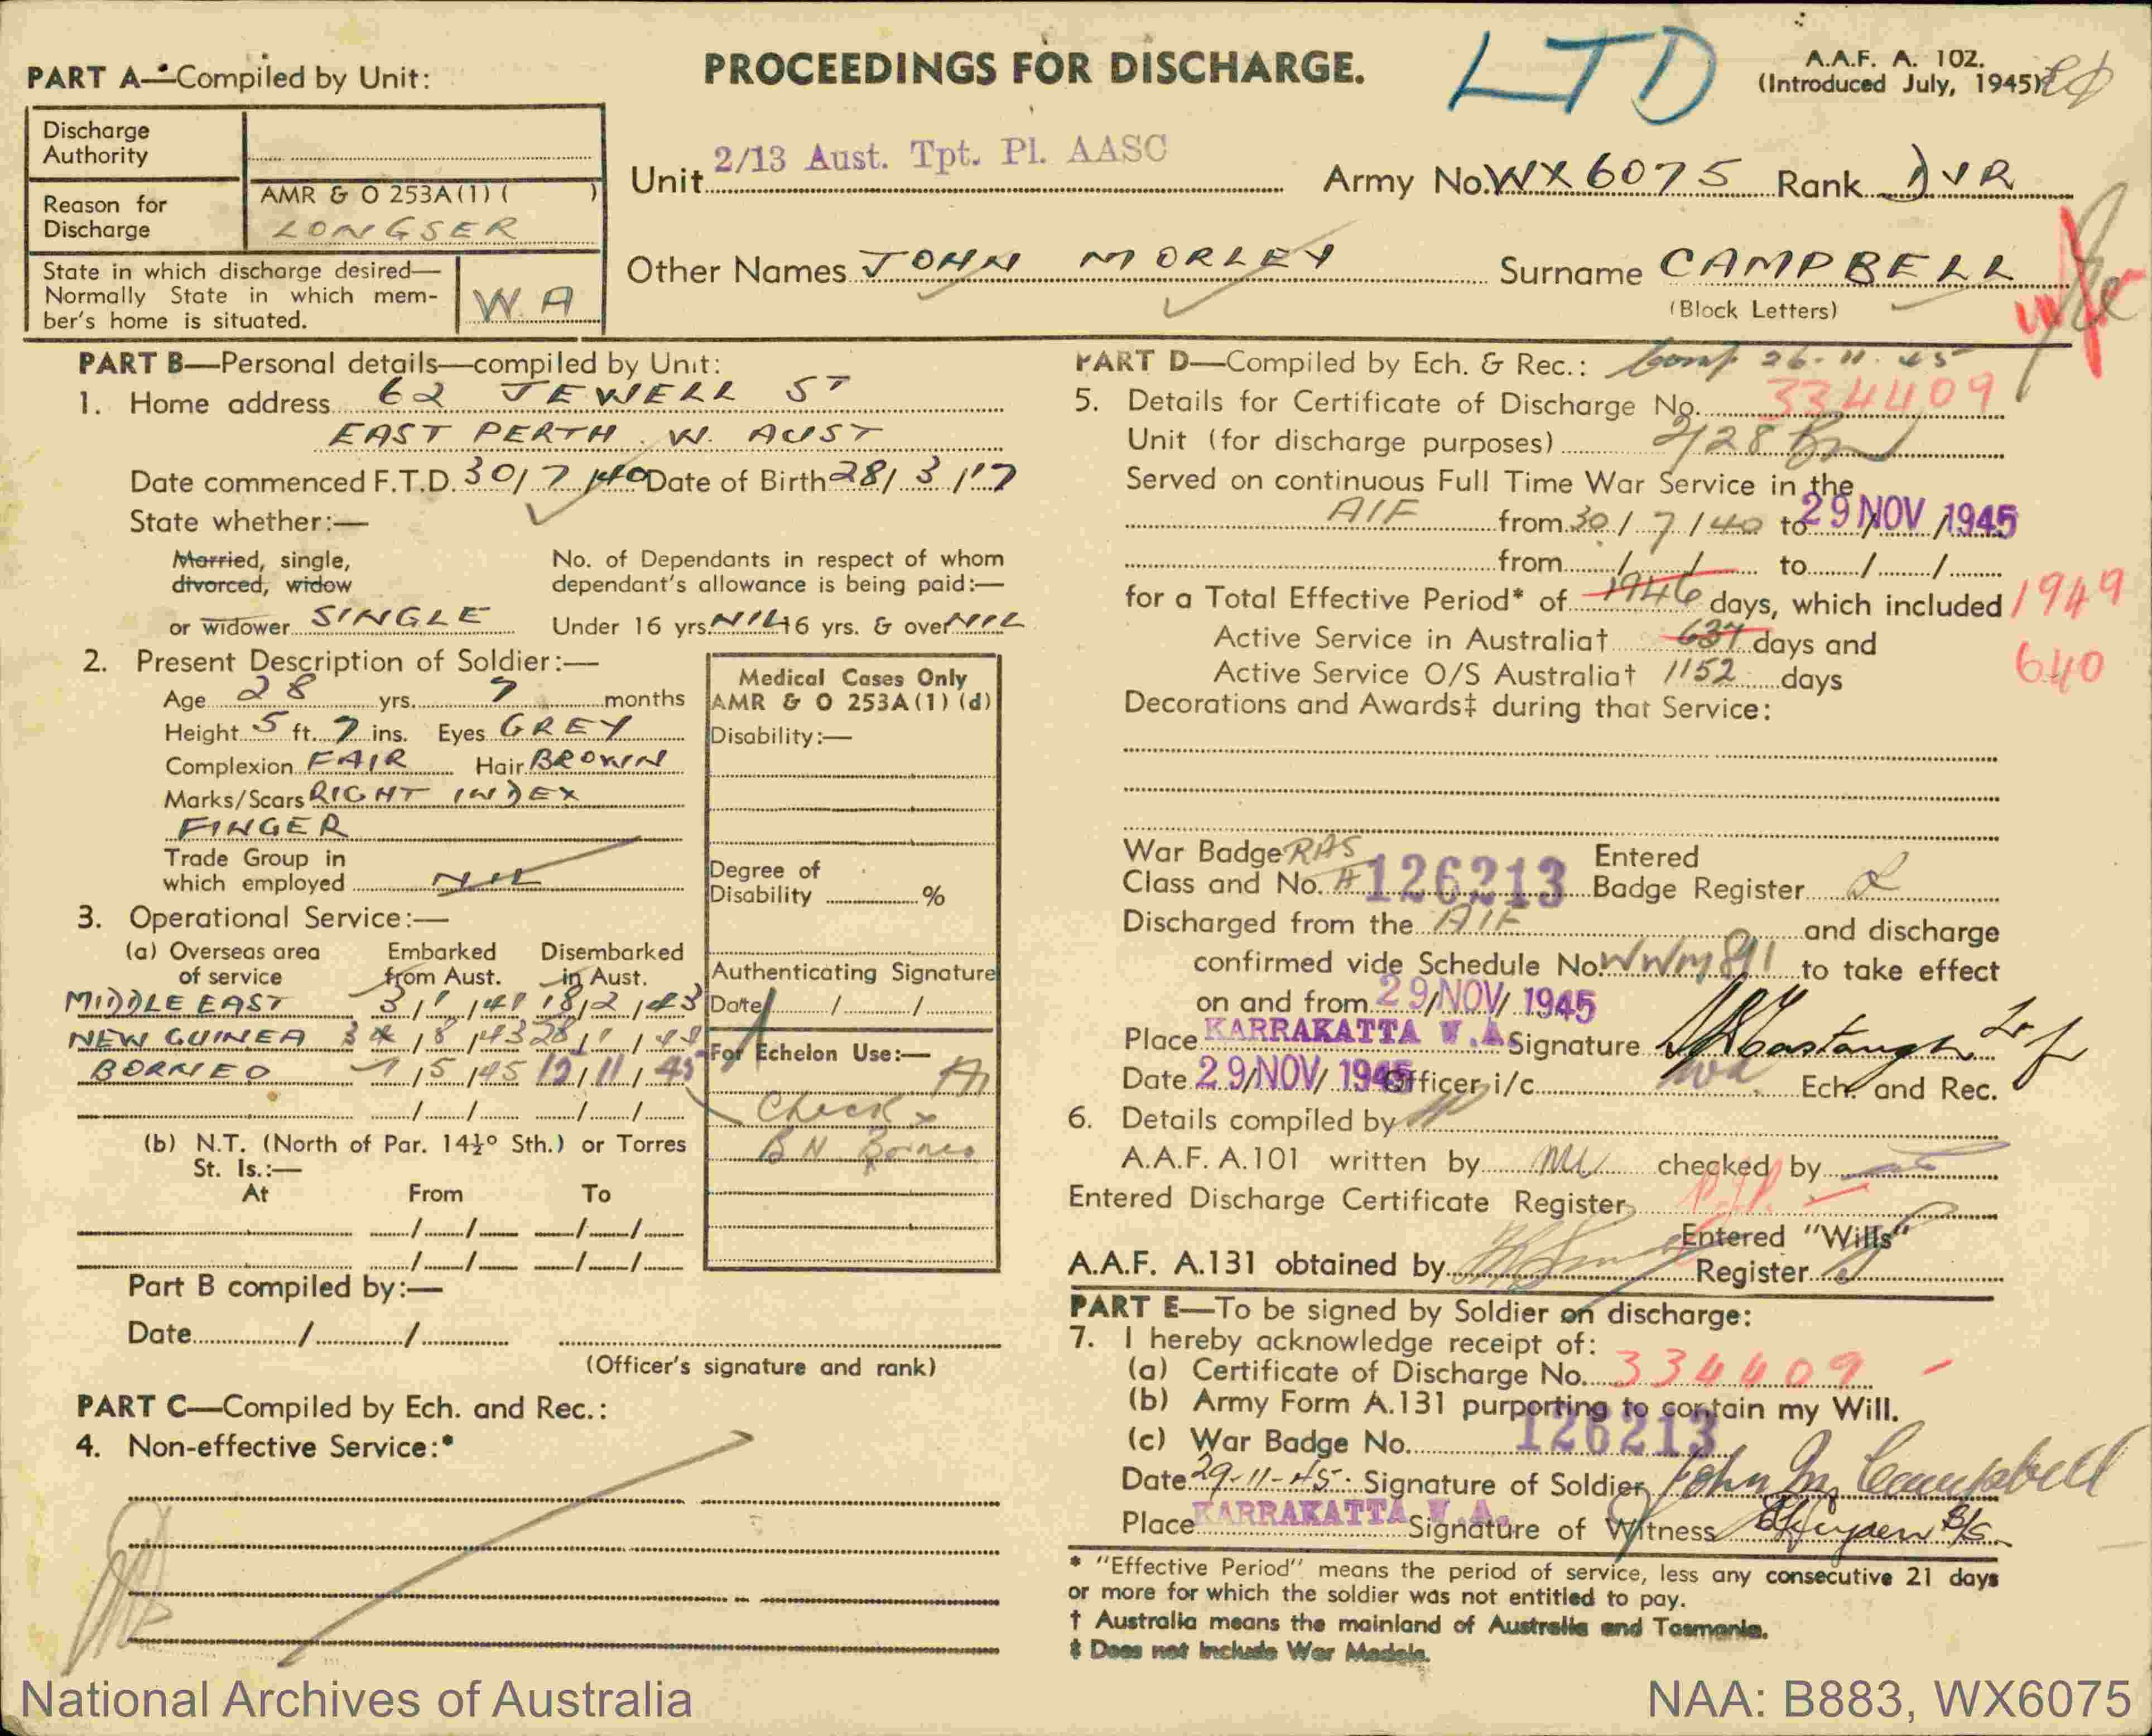 PROCEEDINGS FOR DISCHARGE.
LTD
A.A.F. A. 102.
(Introduced July, 1945)
PART A—Compiled by Unit:
Discharge Authority
Reason for Discharge
AMR & O 253A(1) ( )
LONGSER
State in which discharge desired—
Normally State in which mem-
ber's home is situated.
W.A
Unit 2/13 Aust. Tpt. Pl. AASC Army No. WX6075 Rank DVR
Other Names JOHN MORLEY Surname CAMPBELL
(Block Letters)
PART B—Personal details—compiled by Unit:
1. Home address 62 JEWELL ST
EAST PERTH. W. AUST
Date commenced F.T.D. 30/7/40 Date of Birth 28/3/17
State whether:—
Married, single,
divorced, widow
or widower SINGLE
No. of Dependants in respect of whom
dependant's allowance is being paid:—
Under 16 yrs. NIL 16 yrs. & over NIL
2. Present Description of Soldier:—
Age 28 yrs. 7 months
Height 5 ft. 7 ins. Eyes GREY
Complexion FAIR Hair BROWN
Marks/Scars RIGHT INDEX
FINGER
Trade Group in
which employed NIL
Medical Cases Only
AMR & O 253A(1) (d)
Disability:—
Degree of
Disability %
Authenticating Signature
Date / /
For Echelon Use:—
Check
B N Borneo
3. Operational Service:—
(a) Overseas area of service Embarked from Aust. Disembarked in Aust.
MIDDLE EAST 3/1/41 18/2/43
NEW GUINEA /8/43 28/1/44
BORNEO 1/5/45 15/11/45
/ / / /
(b) N.T. (North of Par. 14½° Sth.) or Torres
St. Is.:—
At From To
/ / / /
/ / / /
Part B compiled by:—
Date / /
(Officer's signature and rank)
PART C—Compiled by Ech. and Rec.:
4. Non-effective Service:*
PART D—Compiled by Ech. & Rec.: Comp 26.11.45
5. Details for Certificate of Discharge No. 334409
Unit (for discharge purposes) 2/28 Bn
Served on continuous Full Time War Service in the
AIF from 30/7/40 to 29 NOV 1945
from / / to / /
for a Total Effective Period* of 1946 days, which included 1949
Active Service in Australia† 637 days and 640
Active Service O/S Australia† 1152 days
Decorations and Awards‡ during that Service:
War Badge RAS
Class and No. A 126213
Entered
Badge Register
Discharged from the AIF and discharge
confirmed vide Schedule No. WWM891 to take effect
on and from 29/NOV/1945
Place KARRAKATTA W.A Signature
Date 29/NOV/1945 Officer i/c Ech. and Rec.
6. Details compiled by
A.A.F. A.101 written by checked by
Entered Discharge Certificate Register
A.A.F. A.131 obtained by Entered "Wills"
Register
PART E—To be signed by Soldier on discharge:
7. I hereby acknowledge receipt of:
(a) Certificate of Discharge No. 334409
(b) Army Form A.131 purporting to contain my Will.
(c) War Badge No. 126213
Date 29-11-45. Signature of Soldier John M. Campbell
Place KARRAKATTA W.A. Signature of Witness
* "Effective Period" means the period of service, less any consecutive 21 days
or more for which the soldier was not entitled to pay.
† Australia means the mainland of Australia and Tasmania.
‡ Does not include War Medals.
National Archives of Australia
NAA: B883, WX6075